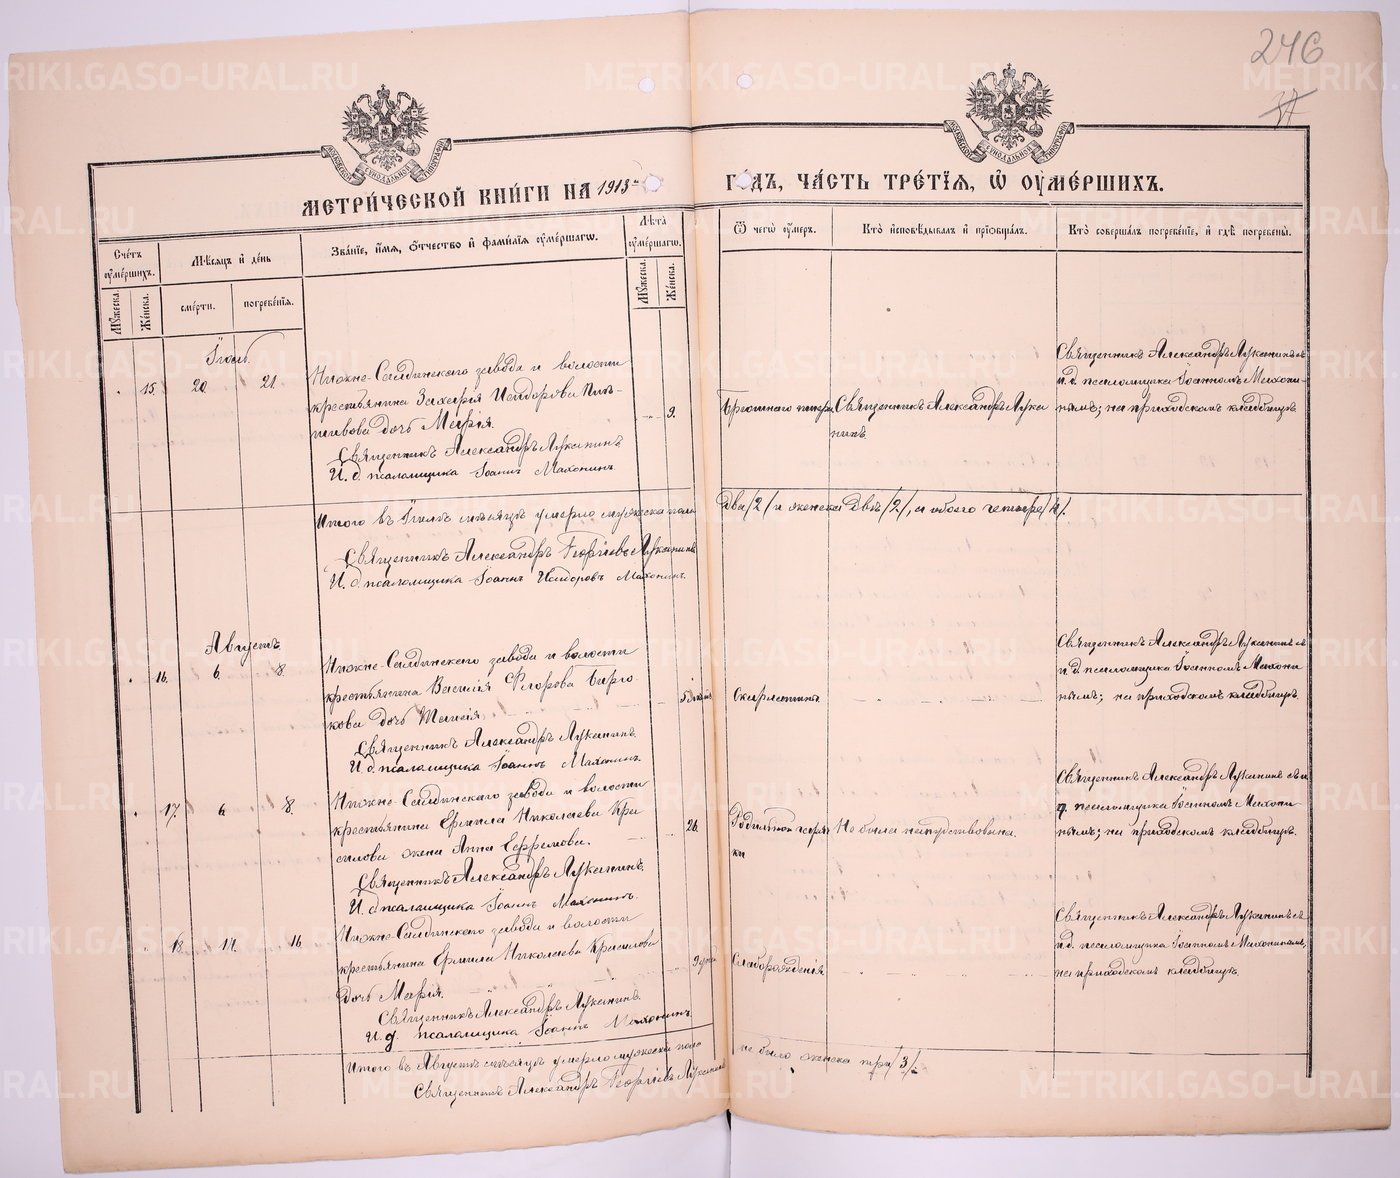 246
37
МЕТРИ́ЧЕСКОЙ КНИ́ГИ НА 1913 й
ГОДЪ, ЧА́СТЬ ТРЕ́ТІЯ, Ѽ ОУМЕ́РШИХЪ.
Сче́тъ оуме́ршихъ.
Мѣ́сяцъ и де́нь
Зва́ніе, и́мя, ѻ́тчество и фами́лія оуме́ршагѡ.
Лѣ́та оуме́ршагѡ.
Ѿ чегѡ̀ оу́меръ.
Кто̀ исповѣ́дывалъ и пріобща́лъ.
Кто̀ соверша́лъ погребе́ніе, и гдѣ̀ погребе́ны.
Му́жеска.
Же́нска.
сме́рти.
погребе́нія.
Му́жеска.
Же́нска.
Іюль.
15.
20.
21.
Нижне-Салдинскаго завода и волости
крестьянина Захарія Исидорова
дочь Марія.
Священникъ Александръ Луканинъ
И. д. псаломщика Іоаннъ Махонинъ.
9.
Брюшного тифа
Священникъ Александръ Лука
нинъ.
Священникъ Александръ Луканинъ съ
и. д. псаломщика Іоанномъ Махони-
нымъ; на приходскомъ кладбищѣ.
Итого въ Іюлѣ мѣсяцѣ умерло мужеска пола
Два /2/ и женска Двѣ /2/, а обоего четыре /4/.
Священникъ Александръ Георгіевъ Луканинъ
И. д. псаломщика Іоаннъ Исидоровъ Махонинъ.
Августъ.
16.
6.
8.
Нижне-Салдинскаго завода и волости
крестьянина Василія Флорова
дочь Таисія.
Священникъ Александръ Луканинъ.
И. д. псаломщика Іоаннъ Махонинъ.
Скарлатины
Священникъ Александръ Луканинъ съ
и д. псаломщика Іоанномъ Махони
нымъ; на приходскомъ кладбищѣ.
17.
6.
8.
Нижне-Салдинскаго завода и волости
крестьянина Ермила Николаева Кра
силова жена Анна Ефремова.
Священникъ Александръ Луканинъ.
И. д. псаломщика Іоаннъ Махонинъ.
26.
Родильной горяч
ки
Не была напутствована.
Священникъ Александръ Луканинъ съ и
д. псаломщика Іоанномъ Махони
нымъ; на приходскомъ кладбищѣ.
18.
14.
16.
Нижне-Салдинскаго завода и волости
крестьянина Ермила Николаева Красилова
дочь Марія.
Священникъ Александръ Луканинъ.
И. д. псаломщика Іоаннъ Махонинъ.
9 дней
Слаборожденія
Священникъ Александръ Луканинъ съ
и. д. псаломщика Іоанномъ Махонинымъ,
на приходскомъ кладбищѣ.
Итого въ Августѣ мѣсяцѣ умерло мужеска пола
не было женска три /3/.
Священникъ Александръ Георгіевъ Луканинъ
METRIKI.GASO-URAL.RU